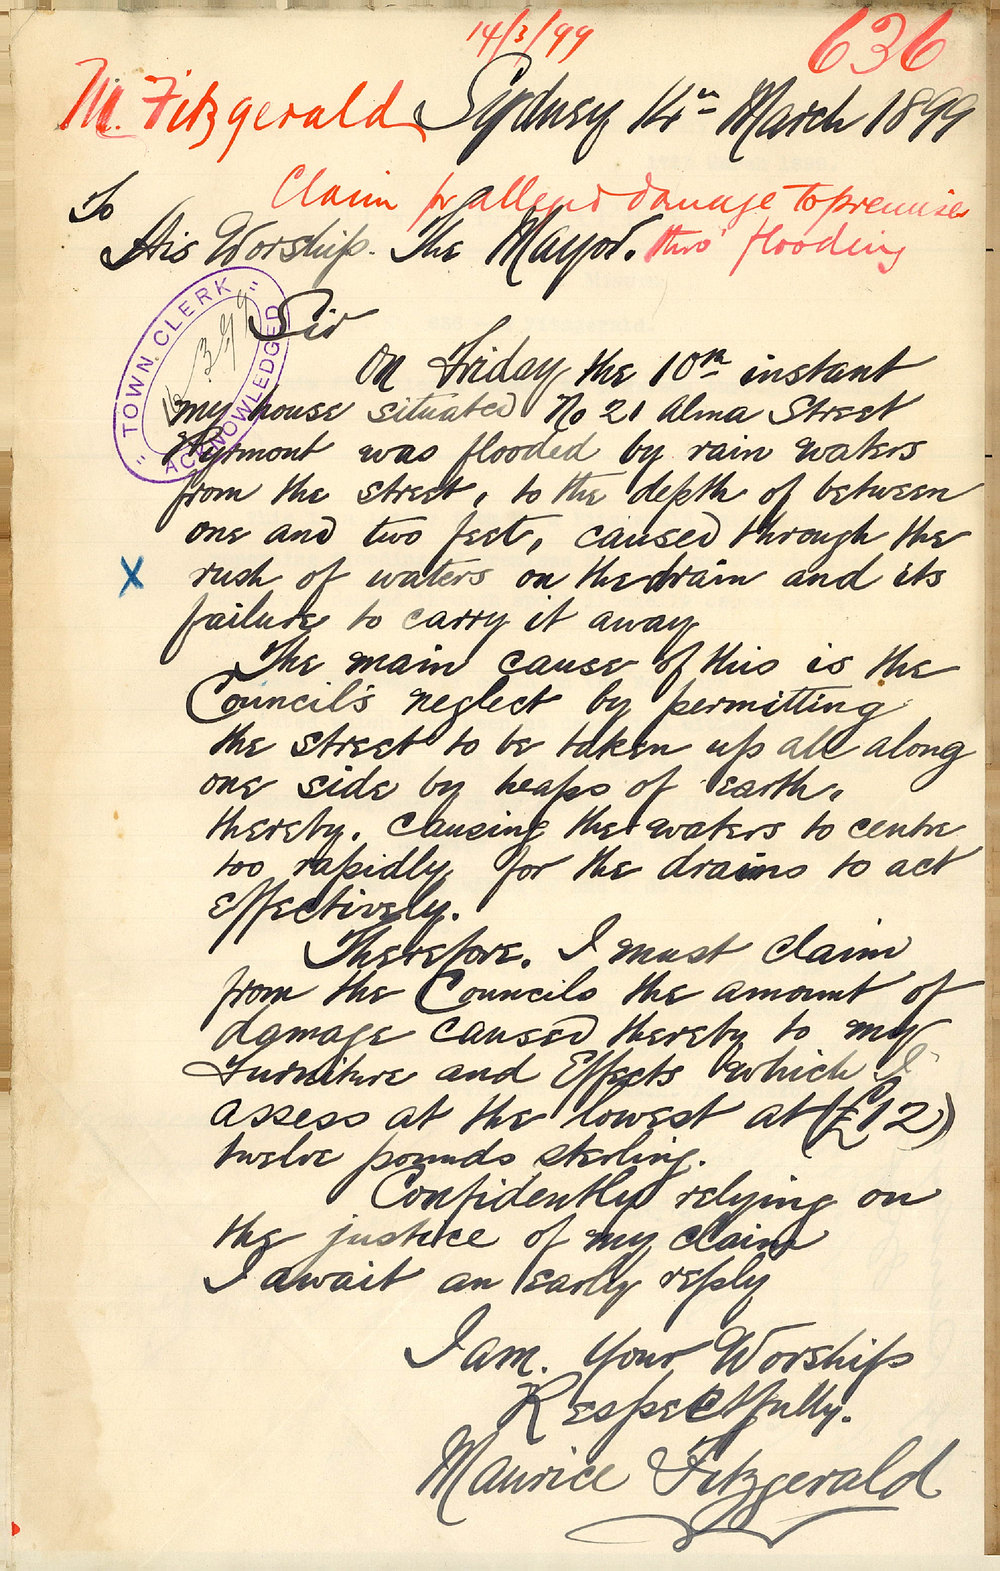 14/3/99
636
M. Fitzgerald
Sydney 14th March 1899
Claim for alleged damage to premises
thro' flooding
To
His Worship. The Mayor.
"TOWN. CLERK"
ACKNOWLEDGED
Sir
On Friday the 10th instant
my house situated No 21 Alma Street
Pyrmont was flooded by rain waters
from the street, to the depth of between
one and two feet, caused through the
X rush of waters on the drain and its
failure to carry it away
The main cause of this is the
Council's neglect by permitting
the street to be taken up all along
one side by heaps of earth,
thereby. causing the waters to centre
too rapidly, for the drains to act
effectively.
Therefore. I must claim
from the Councils the amount of
damage caused thereby to my
Furniture and Effects which I
assess at the lowest at (£12)
twelve pounds sterling.
Confidently relying on
the justice of my claim
I await an early reply
I am. Your Worship
Respectfully.
Maurice Fitzgerald